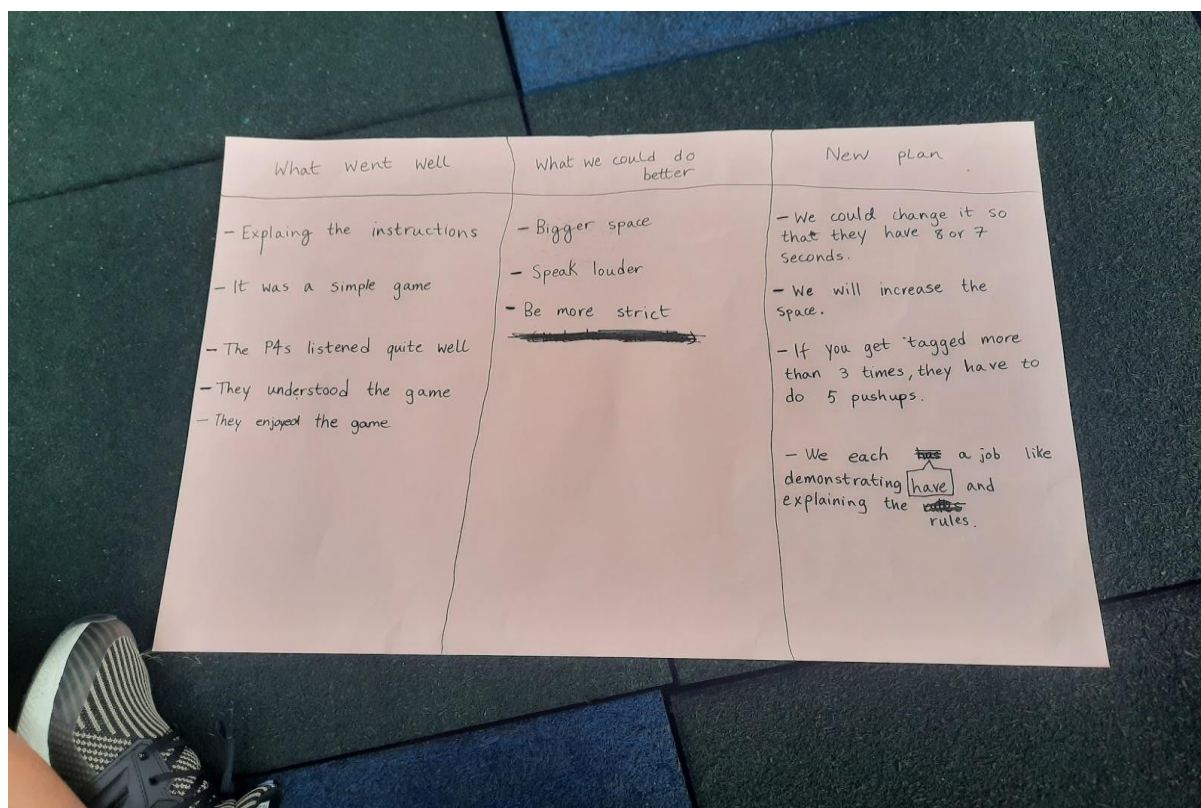 What went well
- Explaing the instructions
- It was a simple game
- The P4s listened quite well
- They understood the game
- They enjoyed the game
What we could do
better
- Bigger space
- Speak louder
- Be more strict
New plan
- We could change it so
that they have 8 or 7
seconds.
- We will increase the
space.
- If you get tagged more
than 3 times, they have to
do 5 pushups.
- We each has a job like
demonstrating have and
explaining the
rules.